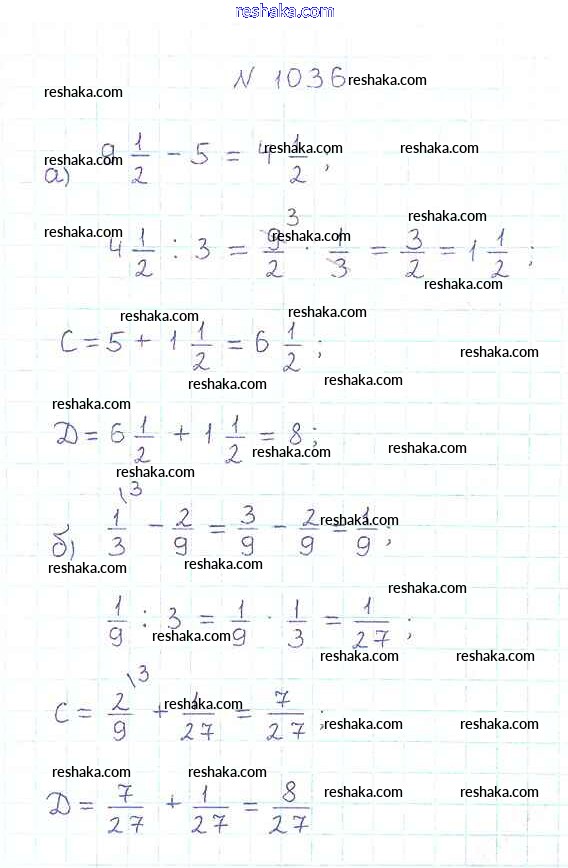 reshaka.com
N 1036 reshaka.com
reshaka.com
reshaka.com reshaka.com
reshaka.com
а) 9 1/2 - 5 = 4 1/2 ;
reshaka.com
reshaka.com 3
reshaka.com
4 1/2 : 3 = 9/2 · 1/3 = 3/2 = 1 1/2 ;
reshaka.com
reshaka.com reshaka.com
C = 5 + 1 1/2 = 6 1/2 ;
reshaka.com
reshaka.com reshaka.com
reshaka.com
Д = 6 1/2 + 1 1/2 = 8 ;
reshaka.com reshaka.com
reshaka.com
\3
reshaka.com
б) 1/3 - 2/9 = 3/9 - 2/9 = 1/9 ;
reshaka.com reshaka.com
reshaka.com
1/9 : 3 = 1/9 · 1/3 = 1/27 ;
reshaka.com
reshaka.com reshaka.com
\3
reshaka.com
C = 2/9 + 1/27 = 7/27 ;
reshaka.com reshaka.com
reshaka.com reshaka.com
reshaka.com reshaka.com
Д = 7/27 + 1/27 = 8/27